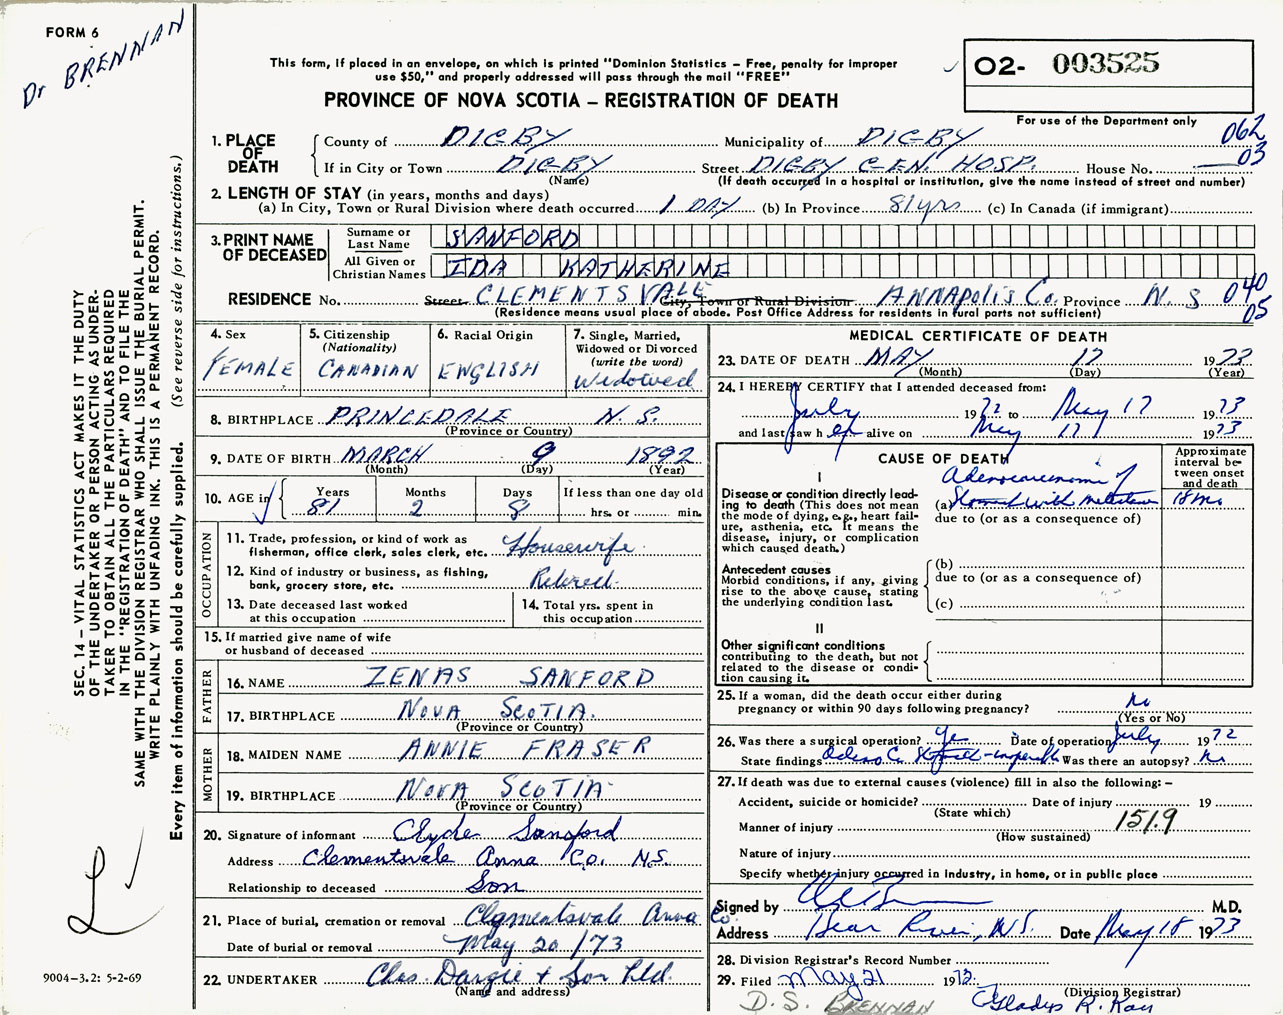 FORM 6
Dr BRENNAN
This form, if placed in an envelope, on which is printed "Dominion Statistics – Free, penalty for improper
use $50," and properly addressed will pass through the mail "FREE"
PROVINCE OF NOVA SCOTIA – REGISTRATION OF DEATH
O2- 003525
For use of the Department only
062
03
1. PLACE OF DEATH
County of DIGBY Municipality of DIGBY
If in City or Town DIGBY Street DIGBY GEN. HOSP. House No.
(Name) (If death occurred in a hospital or institution, give the name instead of street and number)
2. LENGTH OF STAY (in years, months and days)
(a) In City, Town or Rural Division where death occurred 1 DAY (b) In Province 81 yrs (c) In Canada (if immigrant)
3. PRINT NAME OF DECEASED
Surname or Last Name SANFORD
All Given or Christian Names IDA KATHERINE
RESIDENCE No. Street CLEMENTSVALE City, Town or Rural Division ANNAPOLIS Co. Province N. S 040
05
(Residence means usual place of abode. Post Office Address for residents in rural parts not sufficient)
4. Sex
FEMALE
5. Citizenship
(Nationality)
CANADIAN
6. Racial Origin
ENGLISH
7. Single, Married,
Widowed or Divorced
(write the word)
Widowed
8. BIRTHPLACE PRINCEDALE N. S.
(Province or Country)
9. DATE OF BIRTH MARCH 9 1892
(Month) (Day) (Year)
10. AGE in
Years Months Days If less than one day old
81 2 8 hrs. or min.
OCCUPATION
11. Trade, profession, or kind of work as
fisherman, office clerk, sales clerk, etc. Housewife
12. Kind of industry or business, as fishing,
bank, grocery store, etc. Retired
13. Date deceased last worked
at this occupation
14. Total yrs. spent in
this occupation
15. If married give name of wife
or husband of deceased
FATHER
16. NAME ZENAS SANFORD
17. BIRTHPLACE NOVA SCOTIA.
(Province or Country)
MOTHER
18. MAIDEN NAME ANNIE FRASER
19. BIRTHPLACE NOVA SCOTIA
(Province or Country)
20. Signature of informant Clyde Sanford
Address Clementsvale Anna Co. N.S.
Relationship to deceased Son
21. Place of burial, cremation or removal Clementsvale Anna Co.
Date of burial or removal May 20 /73
22. UNDERTAKER Chas. Dargie + Son Ltd.
(Name and address)
MEDICAL CERTIFICATE OF DEATH
23. DATE OF DEATH MAY 17 1973
(Month) (Day) (Year)
24. I HEREBY CERTIFY that I attended deceased from:
July 1972 to May 17 1973
and last saw h er alive on May 17 1973
CAUSE OF DEATH
Approximate
interval be-
tween onset
and death
I
Disease or condition directly lead-
ing to death (This does not mean
the mode of dying, e.g., heart fail-
ure, asthenia, etc. It means the
disease, injury, or complication
which caused death.)
Adenocarcinoma of
(a) Stomach with metastases 18 mo
due to (or as a consequence of)
Antecedent causes
Morbid conditions, if any, giving
rise to the above cause, stating
the underlying condition last.
(b)
due to (or as a consequence of)
(c)
II
Other significant conditions
contributing to the death, but not
related to the disease or condi-
tion causing it.
25. If a woman, did the death occur either during
pregnancy or within 90 days following pregnancy? no
(Yes or No)
26. Was there a surgical operation? Yes Date of operation July 1972
State findings Adeno Ca Stomach - inoperable Was there an autopsy? no
27. If death was due to external causes (violence) fill in also the following: –
Accident, suicide or homicide? Date of injury 19
(State which)
Manner of injury 151.9
(How sustained)
Nature of injury
Specify whether injury occurred in industry, in home, or in public place
Signed by M.D.
Address Bear River, N.S. Date May 18 1973
28. Division Registrar's Record Number
29. Filed May 21 1973
(Division Registrar)
D. S. BRENNAN Gladys R. Kay
SEC. 14 – VITAL STATISTICS ACT MAKES IT THE DUTY
OF THE UNDERTAKER OR PERSON ACTING AS UNDER-
TAKER TO OBTAIN ALL THE PARTICULARS REQUIRED
IN THE "REGISTRATION OF DEATH" AND TO FILE THE
SAME WITH THE DIVISION REGISTRAR WHO SHALL ISSUE THE BURIAL PERMIT.
WRITE PLAINLY WITH UNFADING INK. THIS IS A PERMANENT RECORD.
Every item of information should be carefully supplied. (See reverse side for instructions.)
9004–3.2: 5-2-69